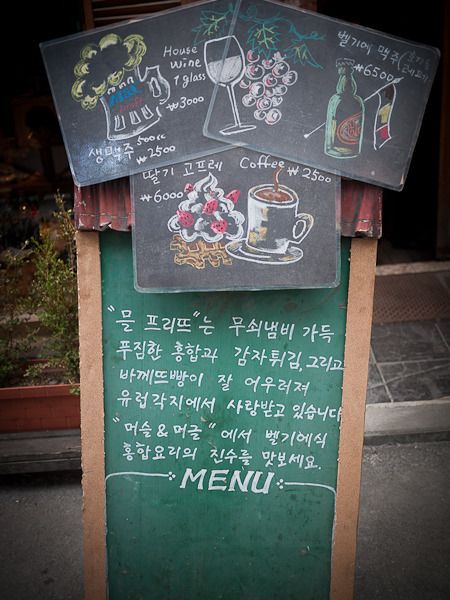 House
Wine
1 glass
₩3000
생맥주 500cc
₩2500
벨기에 맥주
₩6500
딸기 고프레
₩6000
Coffee
₩2500
"믈 프리뜨"는 무쇠냄비 가득
푸짐한 홍합과 감자튀김, 그리고
바께뜨빵이 잘 어우러져
유럽각지에서 사랑받고 있습니다
"머슬&머글" 에서 벨기에식
홍합요리의 진수를 맛보세요.
MENU